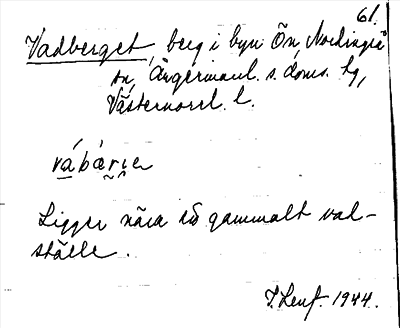 61.
Vadberget, berg i byn Ön, Nordingrå
sn, Ångermanl. s. doms. hg,
Västernorrl. l.
vábàrıe
Ligger nära ett gammalt vad-
ställe.
1944.